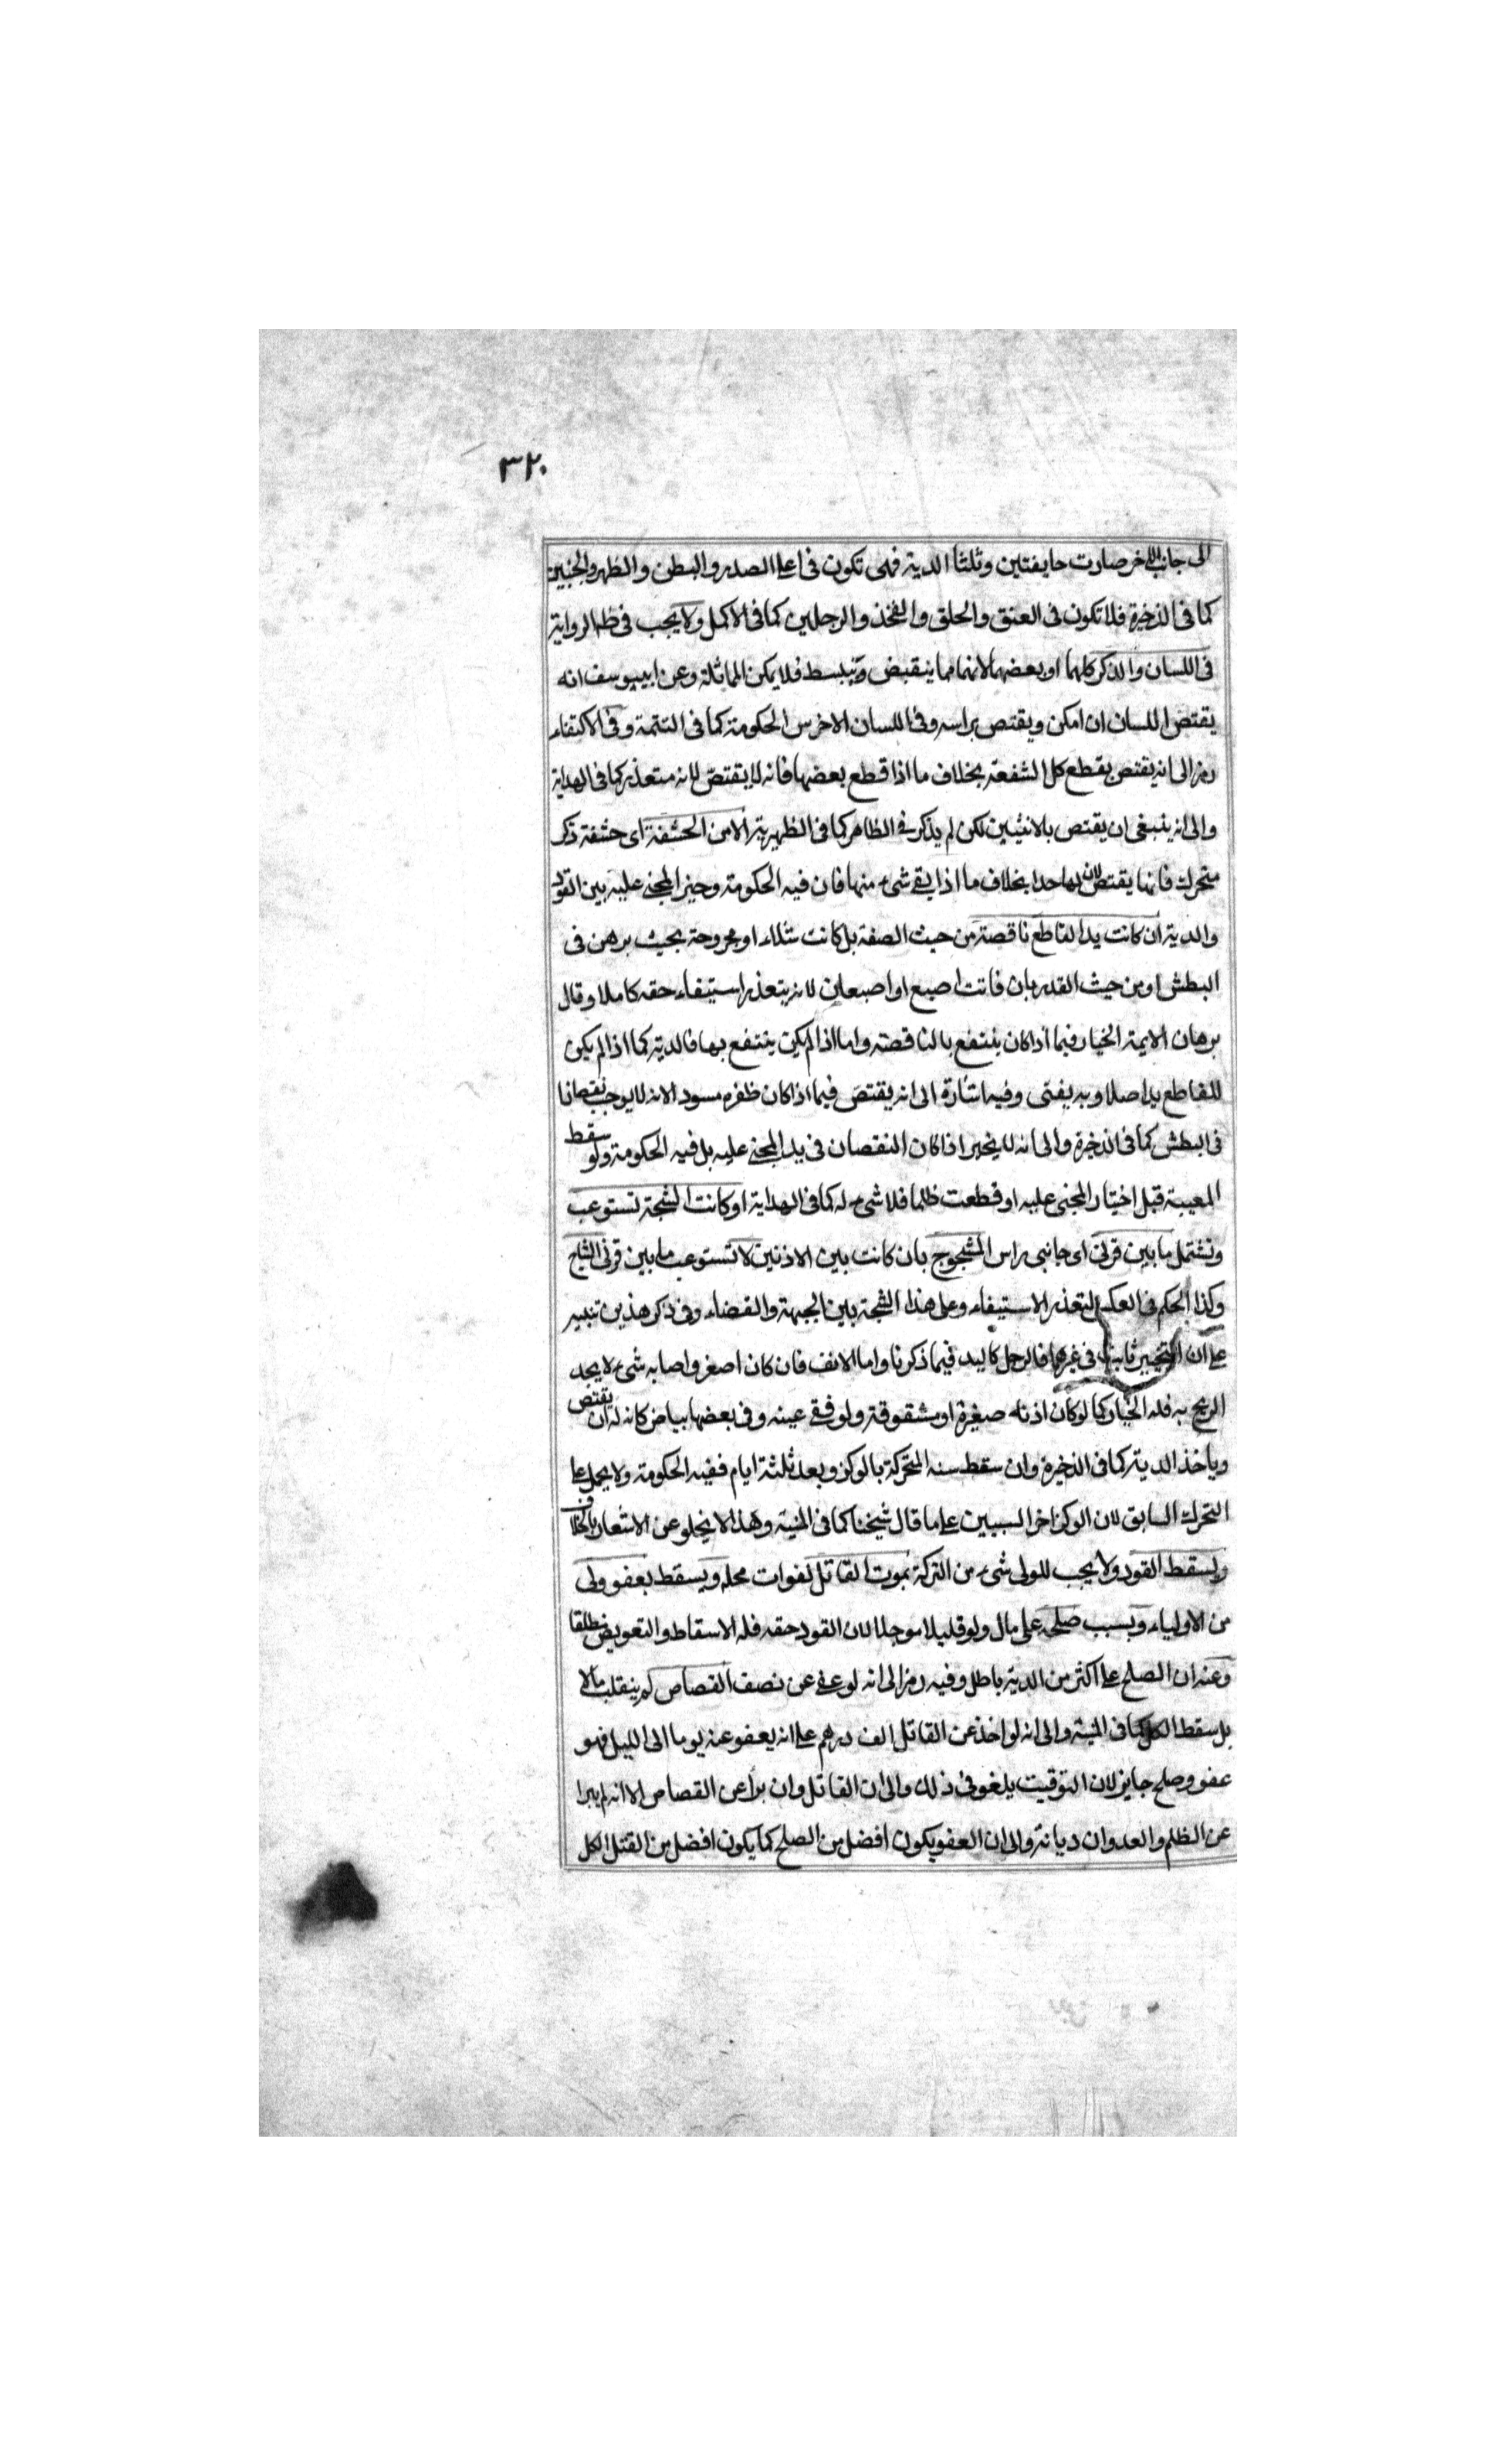 ٣٢٠
الى جانب الاخر صارت جايفتين وثلثا الدية فهى تكون فى اعلى الصدر والبطن والظهر والجنبين
كما فى الذخيرة فلا تكون فى العنق والحلق والفخذ والرجلين كما فى الاكمل ولا يجب فى ظ الرواية
فى اللسان والذكر كلهما او بعضهما لانهما مما ينقبض وينبسط فلا يمكن المماثلة وعن ابييوسف انه
يقتص اللسان ان امكن ويقتص براسه وفى اللسان الاخرس الحكومة كما فى التتمة وفى الاكتفاء
رمز الى انه يقتص بقطع كل الشفعة بخلاف ما اذا قطع بعضها فانه لا يقتص لانه متعذر كما فى الهداية
والى انه ينبغى ان يقتص بالانثيين لكن لم يذكر فى الظاهر كما فى الظهيرية الا من الحشفة اى حشفة ذكر
متحرك فانها يقتص لان لها حدا بخلاف ما اذا بقى شىء منها فان فيه الحكومة وخير المجنى عليه بين القود
والدية ان كانت يد القاطع ناقصة من حيث الصفة بل كانت شلاء او مجروحة بحيث برهن فى
البطش او من حيث القدر بان فاتت اصبع او اصبعان لانه يتعذر استيفاء حقه كاملا وقال
برهان الايمة الخيار فيما اذا كان ينتفع بالناقصة واما اذا لم يكن ينتفع بها فالدية كما اذا لم يكن
للقاطع يد اصلا وبه يفتى وفيه اشارة الى انه يقتص فيما اذا كان ظفره مسودا لانه لا يوجب نقصانا
فى البطش كما فى الذخيرة والى انه لا يخير اذا كان النقصان فى يد المجنى عليه بل فيه الحكومة ولو سقط
المعيبة قبل اختيار المجنى عليه او قطعت ظلما فلا شىء له كما فى الهداية او كانت الشجة تستوعب
وتشتمل ما بين قرنى اى جانبى راس المشجوج بان كانت بين الاذنين لا تستوعب ما بين قرنى الشاج
وكذا الحكم فى العكس لتعذر الاستيفاء وعلى هذا الشجة بين الجبهة والقضاء وفى ذكر هذين تنبيه
على ان التخيير ثابت فى غيرها فالرجل كاليد فيما ذكرنا واما الانف فان كان اصغر واصابه شىء لا يجد
الريح به فله الخيار كما لو كان اذناه صغيرة او مشقوقة ولو فقئ عينه وفى بعضها بياض كانه له ان يقتص
وياخذ الدية كما فى الذخيرة وان سقط سنه المتحركة بالوكز وبعد ثلثة ايام ففيه الحكومة ولا يحمل على
التحرك السابق لان الوكز اخر السببين على ما قال شيخنا كما فى المنية وهذا لا يخلو عن الاشعار بالخلاف
ويسقط القود ولا يجب للولى شىء من التركة بموت القاتل لفوات محله ويسقط بعفو ولى
من الاولياء وبسبب صلحه على مال ولو قليلا موجلا لان القود حقه فله الاسقاط والتعويض مطلقا
وعنه ان الصلح على اكثر من الدية باطل وفيه رمز الى انه لو عفى عن نصف القصاص لم ينقلب مالا
بل سقط الكل كما فى المنية والى انه لو اخذ عن القاتل الف درهم على انه يعفو عنه يوما الى الليل فهو
عفو وصلح جايز لان التوقيت يلغو فى ذلك والى ان القاتل وان برأ عن القصاص الا انه لم يبرا
عن الظلم والعدوان ديانة والى ان العفو يكون افضل من الصلح كما يكون افضل من القتل الكل